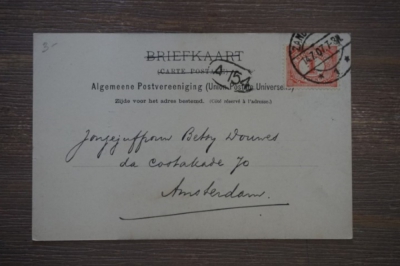 3.-
BRIEFKAART
(CARTE POSTALE)
154
Algemeene Postvereeniging (Union Postale Universelle)
Zijde voor het adres bestemd. (Côté réservé à l'adresse.)
Jongejuffrouw Betsy Douwes
da Costakade 70
Amsterdam.